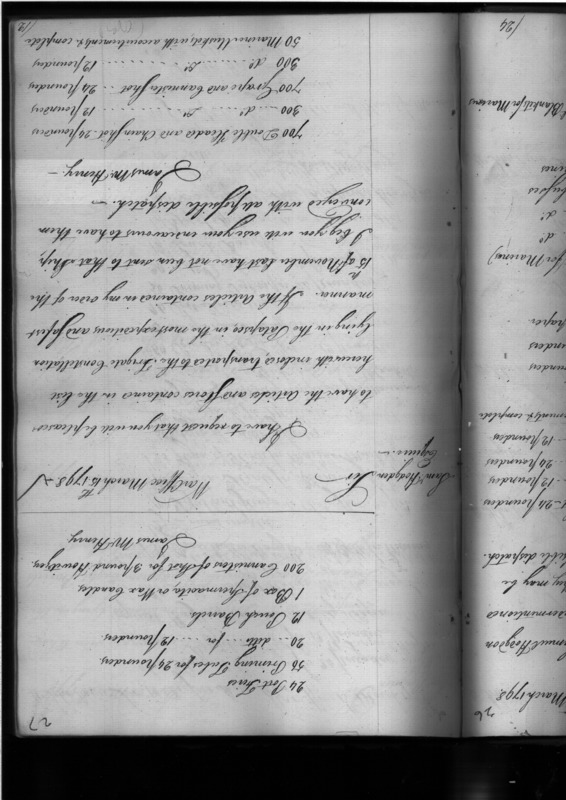 26
March 1798
Samuel Hodgdon
may be
dispatch.
24 pounders
12 pounders
24 pounders
12 pounders
complete
pounders
pounders
paper
for Marines)
do
do
Blankets for Marines
124
27
24 Port Fires
50 Priming Tubes for 24 pounders
20 ditto for 12 pounders
12
1 Box of Spermaceti or Wax Candles
200 Cannisters of Shot for 3 pound Howitzers
James McHenry
War Office March 15th 1798
Saml Hodgdon
Esquire
Sir
I have to request that you will be pleased
to have the Articles and Stores contained in the list
herewith inclosed, transported to the Frigate Constellation
lying in the Patapsco, in the most expeditious and safest
manner. If the Articles contained in my order of the
15th of November last have not been sent to that Ship,
I beg you will use your endeavours to have them
conveyed with all possible dispatch.
James McHenry
700 Double Headed and Chain shot 24 pounders
300 do Do 12 pounders
700 Grape and Cannister shot 24 pounders
300 do Do 12 pounders
50 Marine Muskets, with accoutrements complete